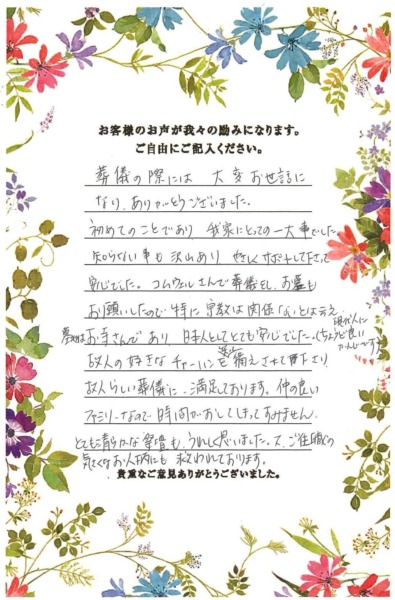 お客様のお声が我々の励みになります。
ご自由にご記入ください。
葬儀の際には 大変お世話に
なり、ありがとうございました。
初めてのことであり 我家にとっての一大事でした。
知らない事も 沢山あり やさしくサポートして下さって
安心でした。コムウェルさんで葬儀をし、お墓も
お願いしたので 特に 宗教は関係ないとは言え
お寺さんであり、日本人としてとても安心でした。(ちょうど良い
現代人に
かんじです)
故人の好きなチャーハンを 備えさせて下さり
故人らしい葬儀に 満足しております。仲の良い
ファミリーなので 時間がおしてしまってすみません。
とても清らかな も、うれしく思いました。又、ご住職の
気さくなお人柄にも 救われております。
貴重なご意見ありがとうございました。